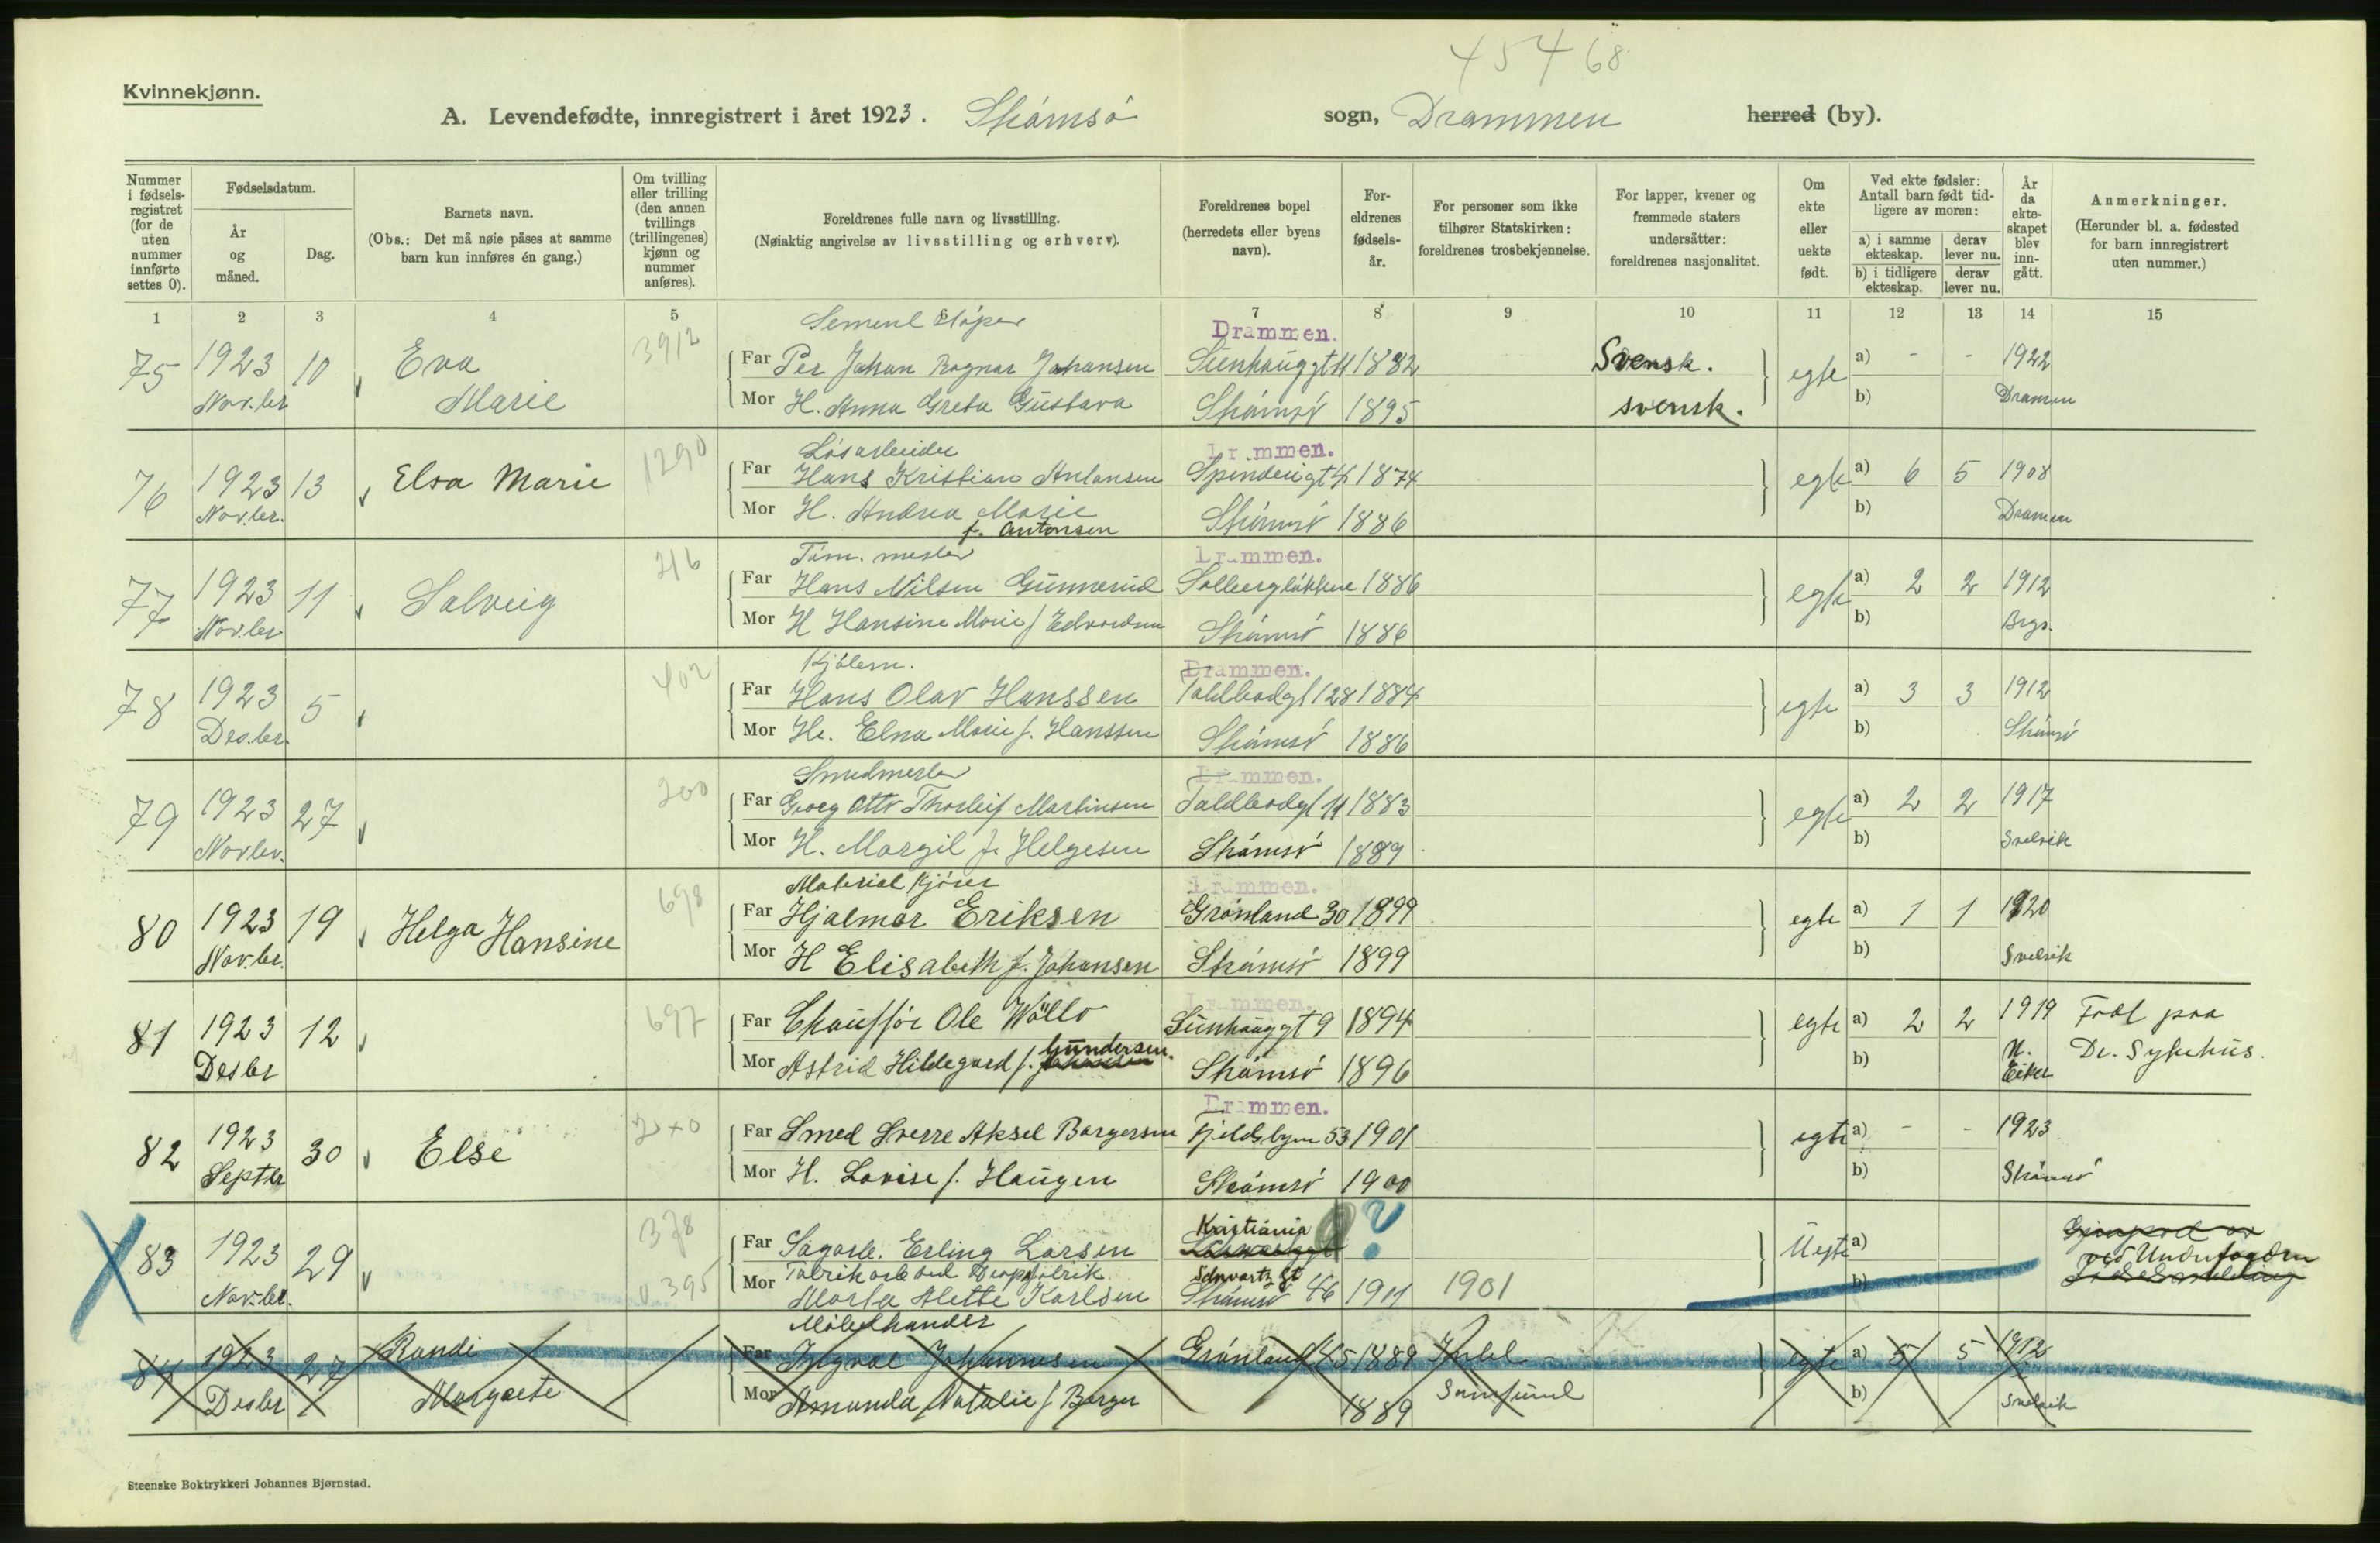 45468
Kvinnekjønn.
A. Levendefødte, innregistrert i året 1923. Strømsö sogn, Drammen herred (by).
Nummer i fødsels-registret (for de uten nummer innførte settes 0).
Fødselsdatum.
År og måned.
Dag.
Barnets navn.
(Obs.: Det må nøie påses at samme barn kun innføres én gang.)
Om tvilling eller trilling (den annen tvillings (trillingenes) kjønn og nummer anføres).
Foreldrenes fulle navn og livsstilling.
(Nøiaktig angivelse av livsstilling og erhverv).
Foreldrenes bopel (herredets eller byens navn).
For-eldrenes fødsels-år.
For personer som ikke tilhører Statskirken: foreldrenes trosbekjennelse.
For lapper, kvener og fremmede staters undersåtter: foreldrenes nasjonalitet.
Om ekte eller uekte født.
Ved ekte fødsler: Antall barn født tid-ligere av moren:
a) i samme ekteskap. derav lever nu.
b) i tidligere ekteskap. derav lever nu.
År da ekte-skapet blev inn-gått.
Anmerkninger.
(Herunder bl. a. fødested for barn innregistrert uten nummer.)
1 2 3 4 5 6 7 8 9 10 11 12 13 14 15
Drammen.
75 1923 10 Eva 3912 Far Per Johan Ragnar Johansen 1882 Svensk. egte a) - - 1922
Nov.br Marie Mor H. Anna Greta Gustava Strømsö 1895 svensk. b) Drammen
Løsarbeider Drammen.
76 1923 13 Elsa Marie 1290 Far Hans Kristian Antonsen 1874 egte a) 6 5 1908
Nov.br. Mor H. Andrea Marie Strømsö 1886 b) Drammen
f. Antonsen
Töm. mester Drammen.
77 1923 11 Solveig 216 Far Hans Nilsen Gunnerud Solbergløkken 1886 egte a) 2 2 1912
Nov.br Mor H Hansine Marie f Edvardsen Strømsö 1886 b) Brgs.
Drammen.
78 1923 5 402 Far Hans Olav Hanssen Toldbodgt 128 1884 egte a) 3 3 1912
Des.br. Mor H. Elna Marie f. Hanssen Strømsö 1886 b) Strømsö
Smedmester Drammen.
79 1923 27 200 Far Georg Otto Thorleif Martinsen Toldbodgt 11 1883 egte a) 2 2 1917
Nov.br. Mor H. Margit f. Helgesen Strømsö 1889 b) Svelvik
Material kjører Drammen.
80 1923 19 Helga Hansine 698 Far Hjalmar Eriksen Grønland 30 1899 egte a) 1 1 1920
Nov.br. Mor H Elisabeth f. Johansen Strømsö 1899 b) Svelvik
Drammen.
81 1923 12 697 Far Chaufför Ole Wøllo Sunhauggt 9 1894 egte a) 2 2 1919 Född paa
Gundersen.
Desbr Mor Astrid Hildegard f. Johansen Strømsö 1896 b) N. Eiker Dr. Sykehus.
Drammen.
82 1923 30 Else Far Smed Sverre Aksel Borgersen Fjeldsbyen 53 1901 egte a) - - 1923
Septbr Mor H. Lovise f. Haugen Strømsö 1900 b) Strømsö
Kristiania ?
83 1923 29 378 Far Sagarb. Erling Larsen Uegte a)
Nov.br. 0395 Mor Schwartz gt ved Underfogden
Marta Alette Karlsen Strømsö 46 1901 b)
Møbelhandler
84 1923 27 Randi Far Ingval Johannesen Grønland 45 1889 egte a) 5 5 1912
Desbr Margrete Mor Amanda Natalie f Berger 1889 Samfund b) Svelvik
Steenske Boktrykkeri Johannes Bjørnstad.